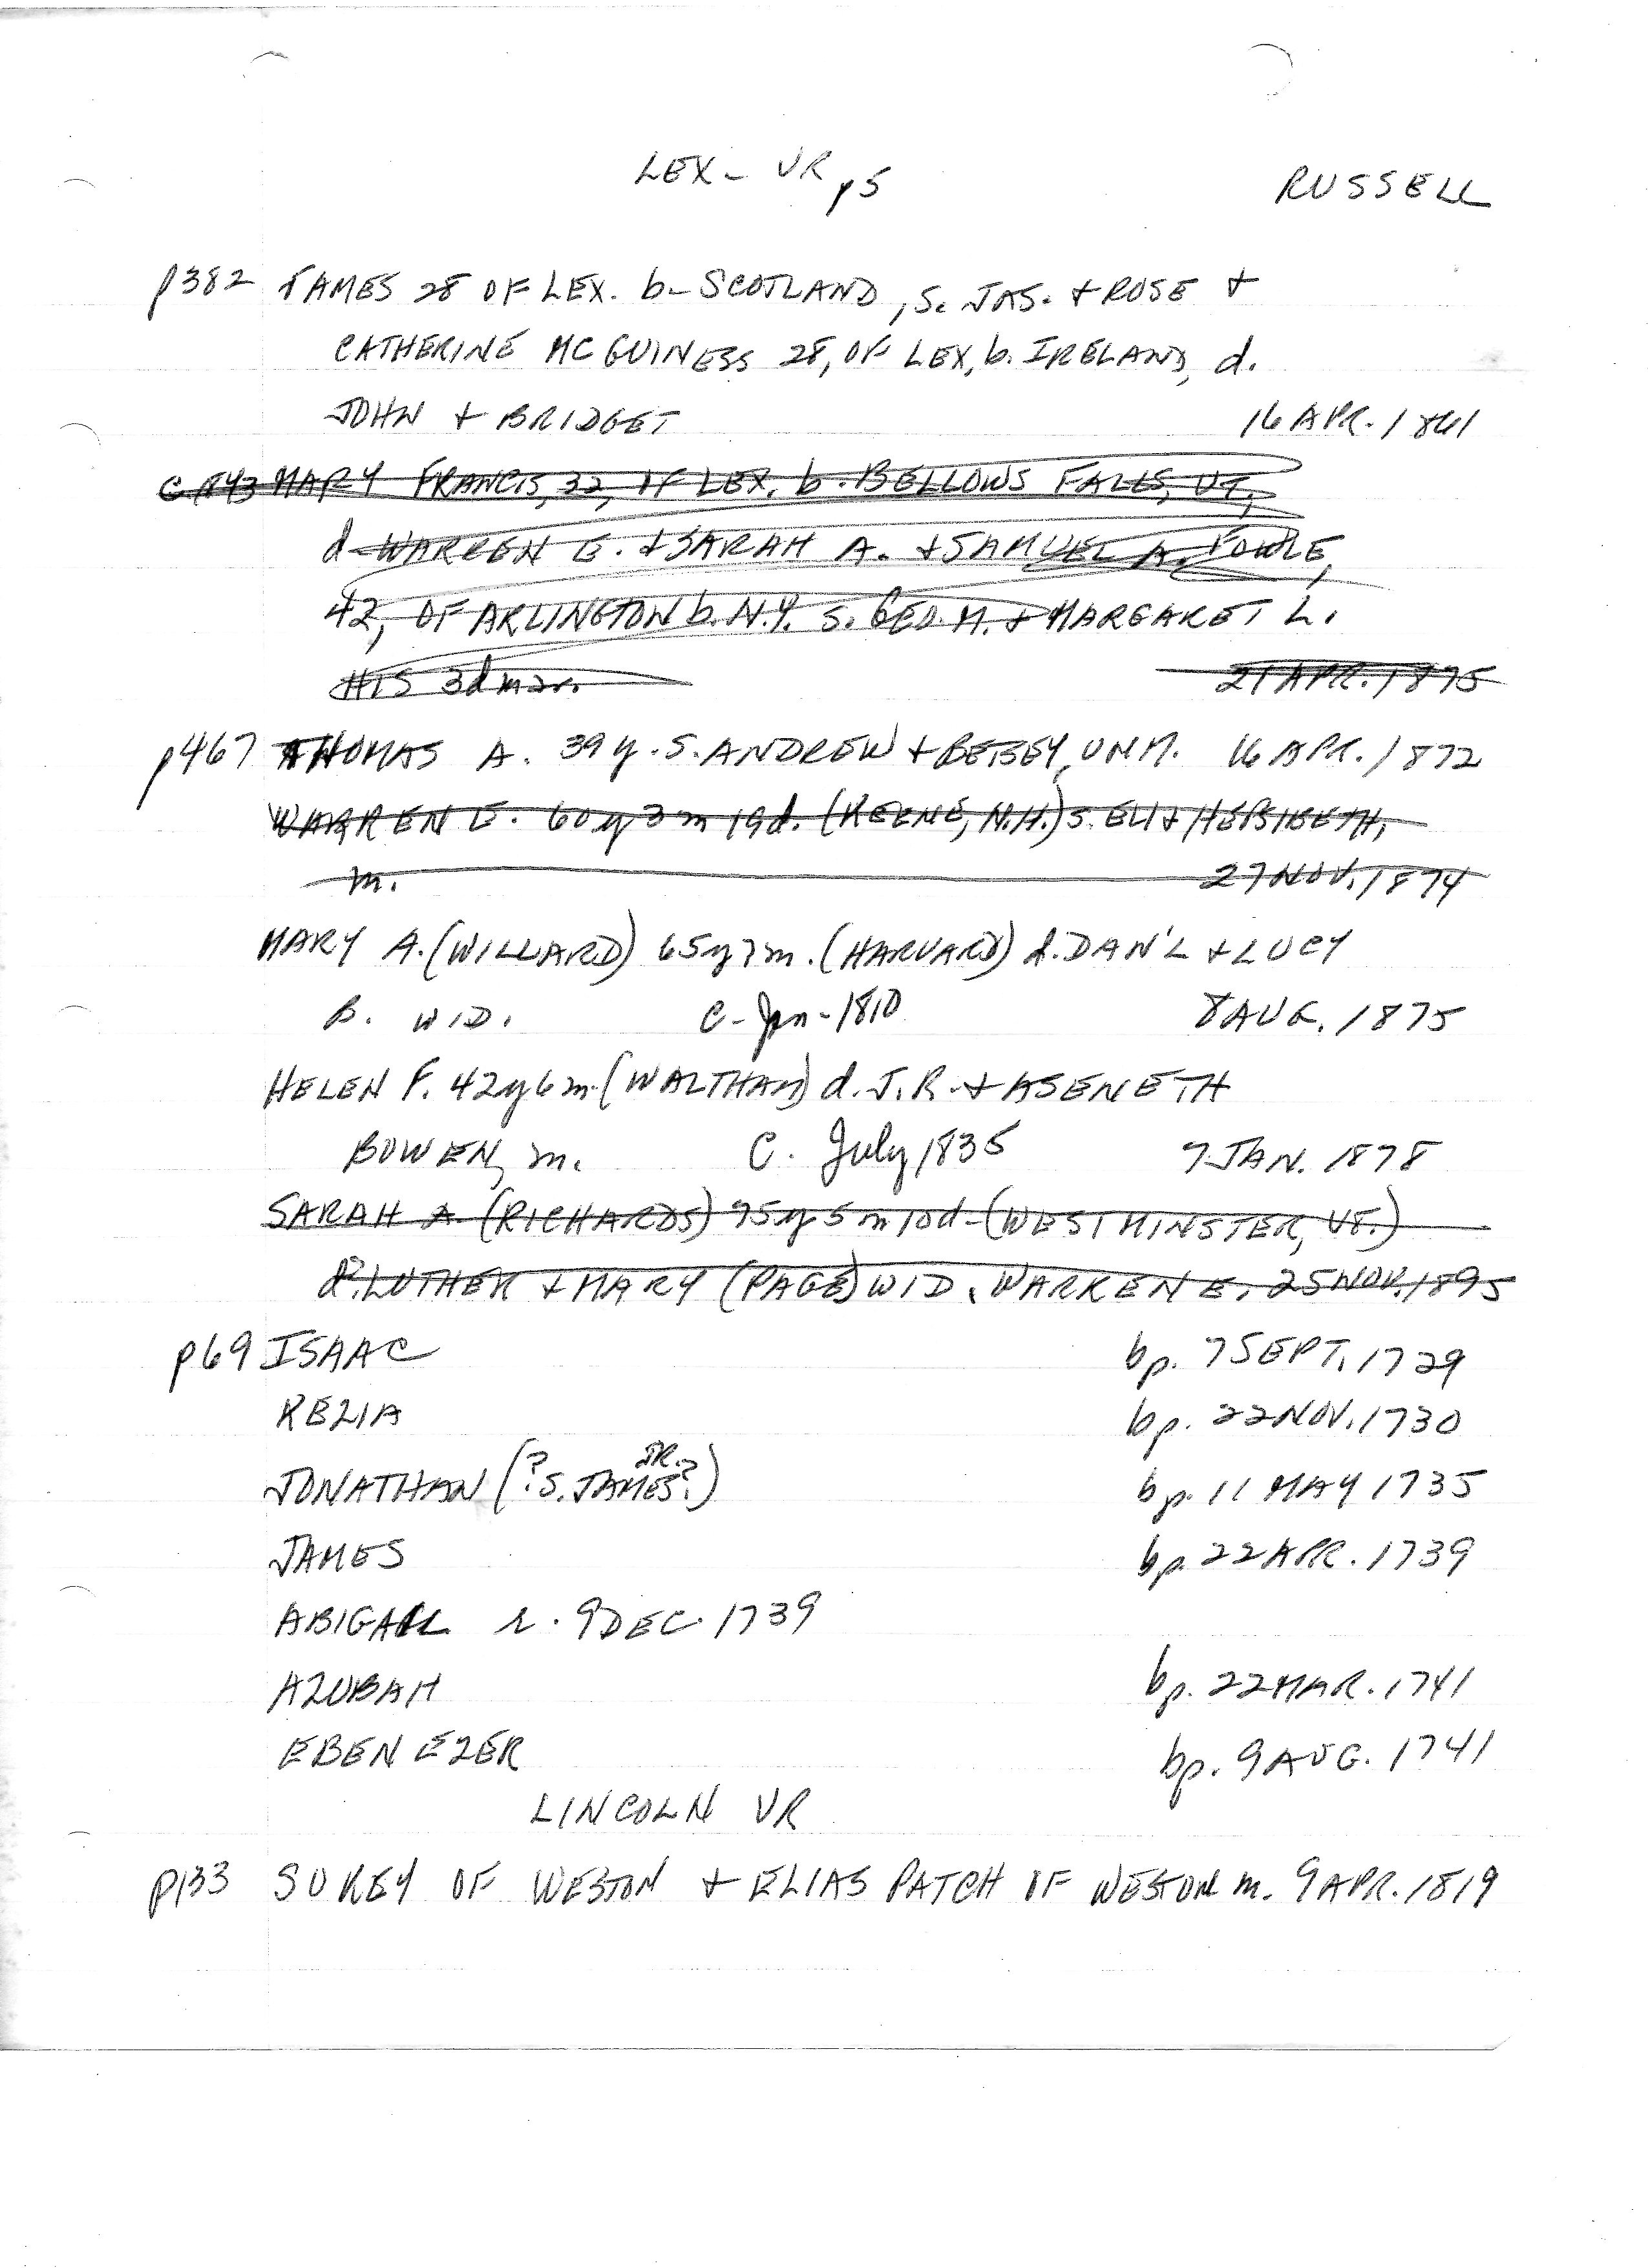 LEX - VR p5 RUSSELL
p382 JAMES 28 OF LEX. b- SCOTLAND, S. JAS. + ROSE +
CATHERINE MCGUINESS 28, OF LEX, b. IRELAND, d.
JOHN + BRIDGET 16 APR. 1861
C 1843 MARY FRANCIS, 32, OF LEX. b. BELLOWS FALLS, VT,
d- WARREN E. + SARAH A. + SAMUEL A. FOWLE,
42, OF ARLINGTON b. N.Y. S. GEO. M. + MARGARET L.
HIS 3d mar. 21 APR. 1875
p467 THOMAS A. 39y. S. ANDREW + BETSEY, UNM. 16 APR. 1872
WARREN E. 60y 3m 19d. (KEENE, N.H.) S. ELI + HEPSIBETH,
m. 27 NOV. 1874
MARY A. (WILLARD) 65y 7m. (HARVARD) d. DAN'L + LUCY
B. WID. C- Jan - 1810 8 AUG. 1875
HELEN F. 42y 6m. (WALTHAM) d. J. R. + ASENETH
BOWEN, m. C. July 1835 7 JAN. 1878
SARAH A. (RICHARDS) 75y 5m 10d - (WESTMINSTER, VT.)
d. LUTHER + MARY (PAGE) WID. WARREN E. 25 NOV. 1895
p69 ISAAC bp. 7 SEPT. 1729
KEZIA bp. 22 NOV. 1730
JONATHAN (? S. JAMES JR. ?) bp. 11 MAY 1735
JAMES bp. 22 APR. 1739
ABIGAIL r. 9 DEC. 1739
AZUBAH bp. 22 MAR. 1741
EBENEZER bp. 9 AUG. 1741
LINCOLN VR
p133 SUKEY OF WESTON + ELIAS PATCH OF WESTON m. 9 APR. 1819